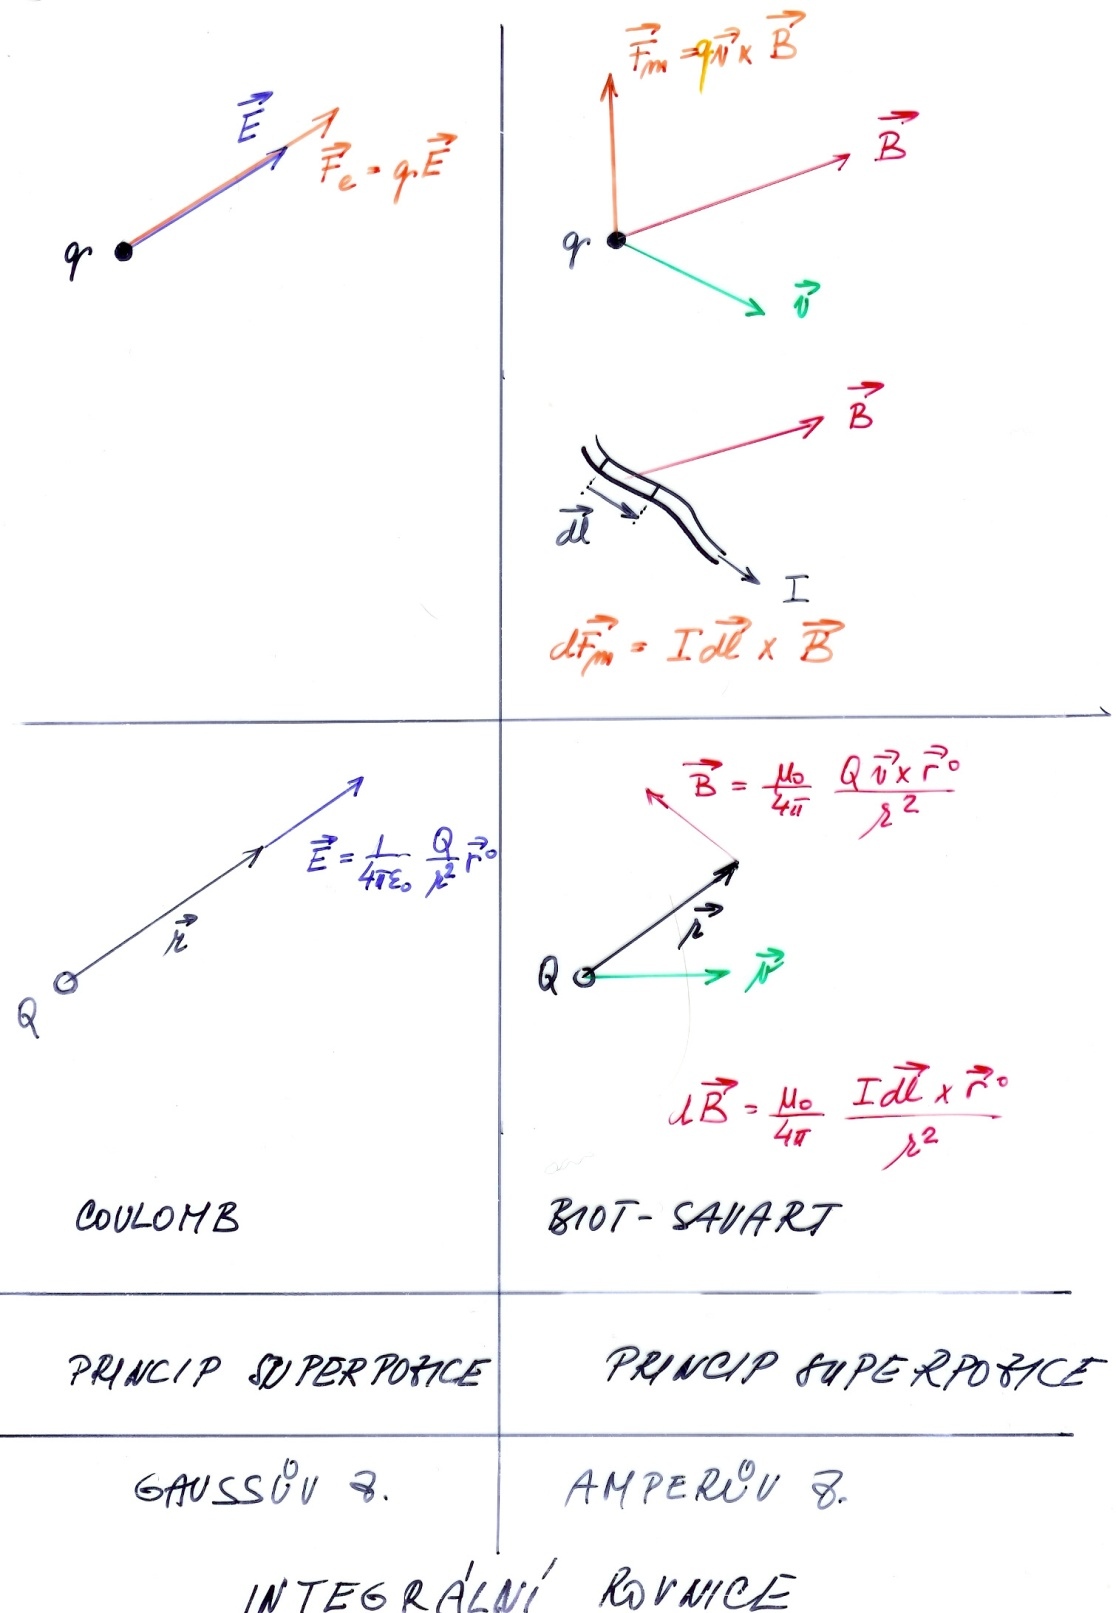 E⃗
F⃗e = q.E⃗
q
F⃗m = qv⃗ x B⃗
B⃗
q
v⃗
B⃗
dl⃗
I
dF⃗m = I dl⃗ x B⃗
E⃗ = 1/4πε₀ Q/r² r⃗⁰
r⃗
Q
B⃗ = μ₀/4π Q v⃗ x r⃗⁰/r²
r⃗
Q
v⃗
dB⃗ = μ₀/4π I dl⃗ x r⃗⁰/r²
COULOMB
BIOT-SAVART
PRINCIP SUPERPOZICE
PRINCIP SUPERPOZICE
GAUSSŮV Z.
AMPERŮV Z.
INTEGRÁLNÍ ROVNICE